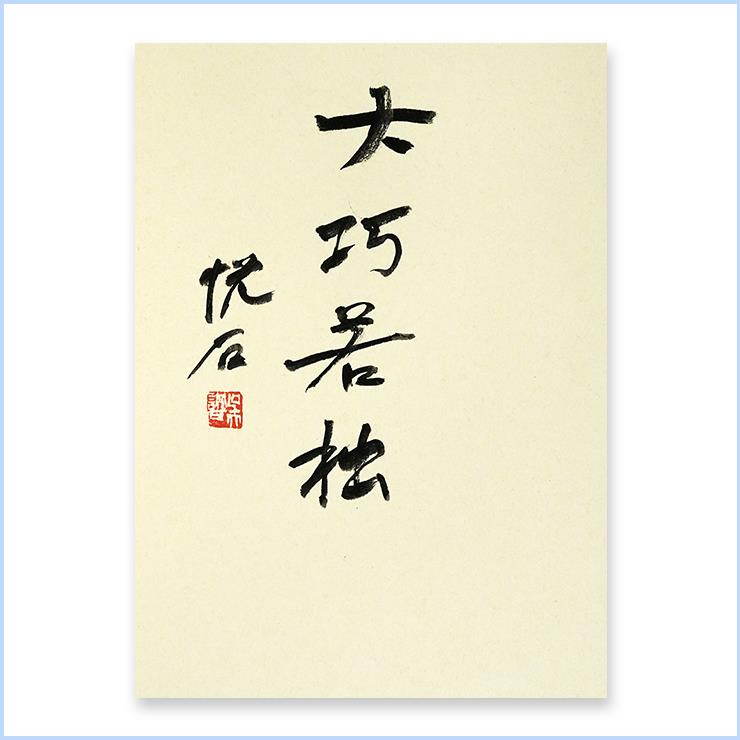 大巧若拙
悦石